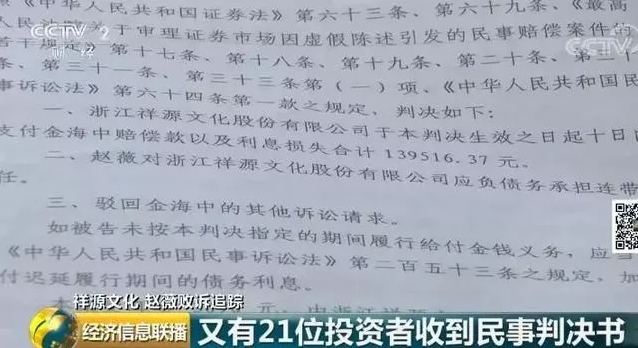 CCTV 2
财经
CCTV
《中华人民共和国证券法》第六十三条、第六十九条、《最高
人民法院关于审理证券市场因虚假陈述引发的民事赔偿案件的
若干规定》第十七条、第十八条、第十九条、第二十条、第二十
条、第三十一条、第三十三条第(一)项、《中华人民共和国民
事诉讼法》第六十四条第一款之规定，判决如下：
一、浙江祥源文化股份有限公司于本判决生效之日起十日
支付金海中赔偿款以及利息损失合计 139516.37 元。
二、赵薇对浙江祥源文化股份有限公司应负债务承担连带
任。
三、驳回金海中的其他诉讼请求。
如被告未按本判决指定的期间履行给付金钱义务，应当
《中华人民共和国民事诉讼法》第二百五十三条之规定，加
付迟延履行期间的债务利息。
祥源文化 赵薇败诉追踪
经济信息联播
又有21位投资者收到民事判决书